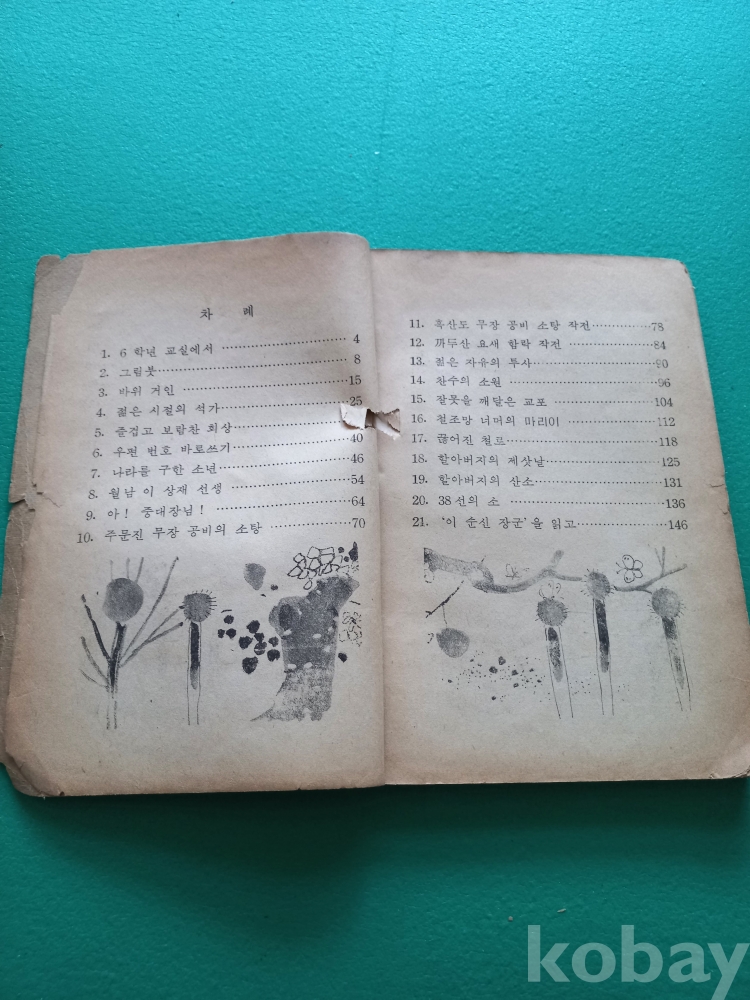 차 례
1. 6 학년 교실에서 ………………… 4
2. 그림붓 ………………… 8
3. 바위 거인 ………………… 15
4. 젊은 시절의 석가 ………………… 25
5. 즐겁고 보람찬 회상
6. 우편 번호 바로쓰기 ………………… 40
7. 나라를 구한 소년 ………………… 46
8. 월남 이 상재 선생 ………………… 54
9. 아! 중대장님! ………………… 64
10. 주문진 무장 공비의 소탕 ………………… 70
11. 흑산도 무장 공비 소탕 작전 ………………… 78
12. 까두산 요새 함락 작전 ………………… 84
13. 젊은 자유의 투사 ………………… 90
14. 찬수의 소원 ………………… 96
15. 잘못을 깨달은 교포 ………………… 104
16. 철조망 너머의 마리이 ………………… 112
17. 끊어진 철로 ………………… 118
18. 할아버지의 제삿날 ………………… 125
19. 할아버지의 산소 ………………… 131
20. 38선의 소 ………………… 136
21. '이 순신 장군'을 읽고 ………………… 146
kobay